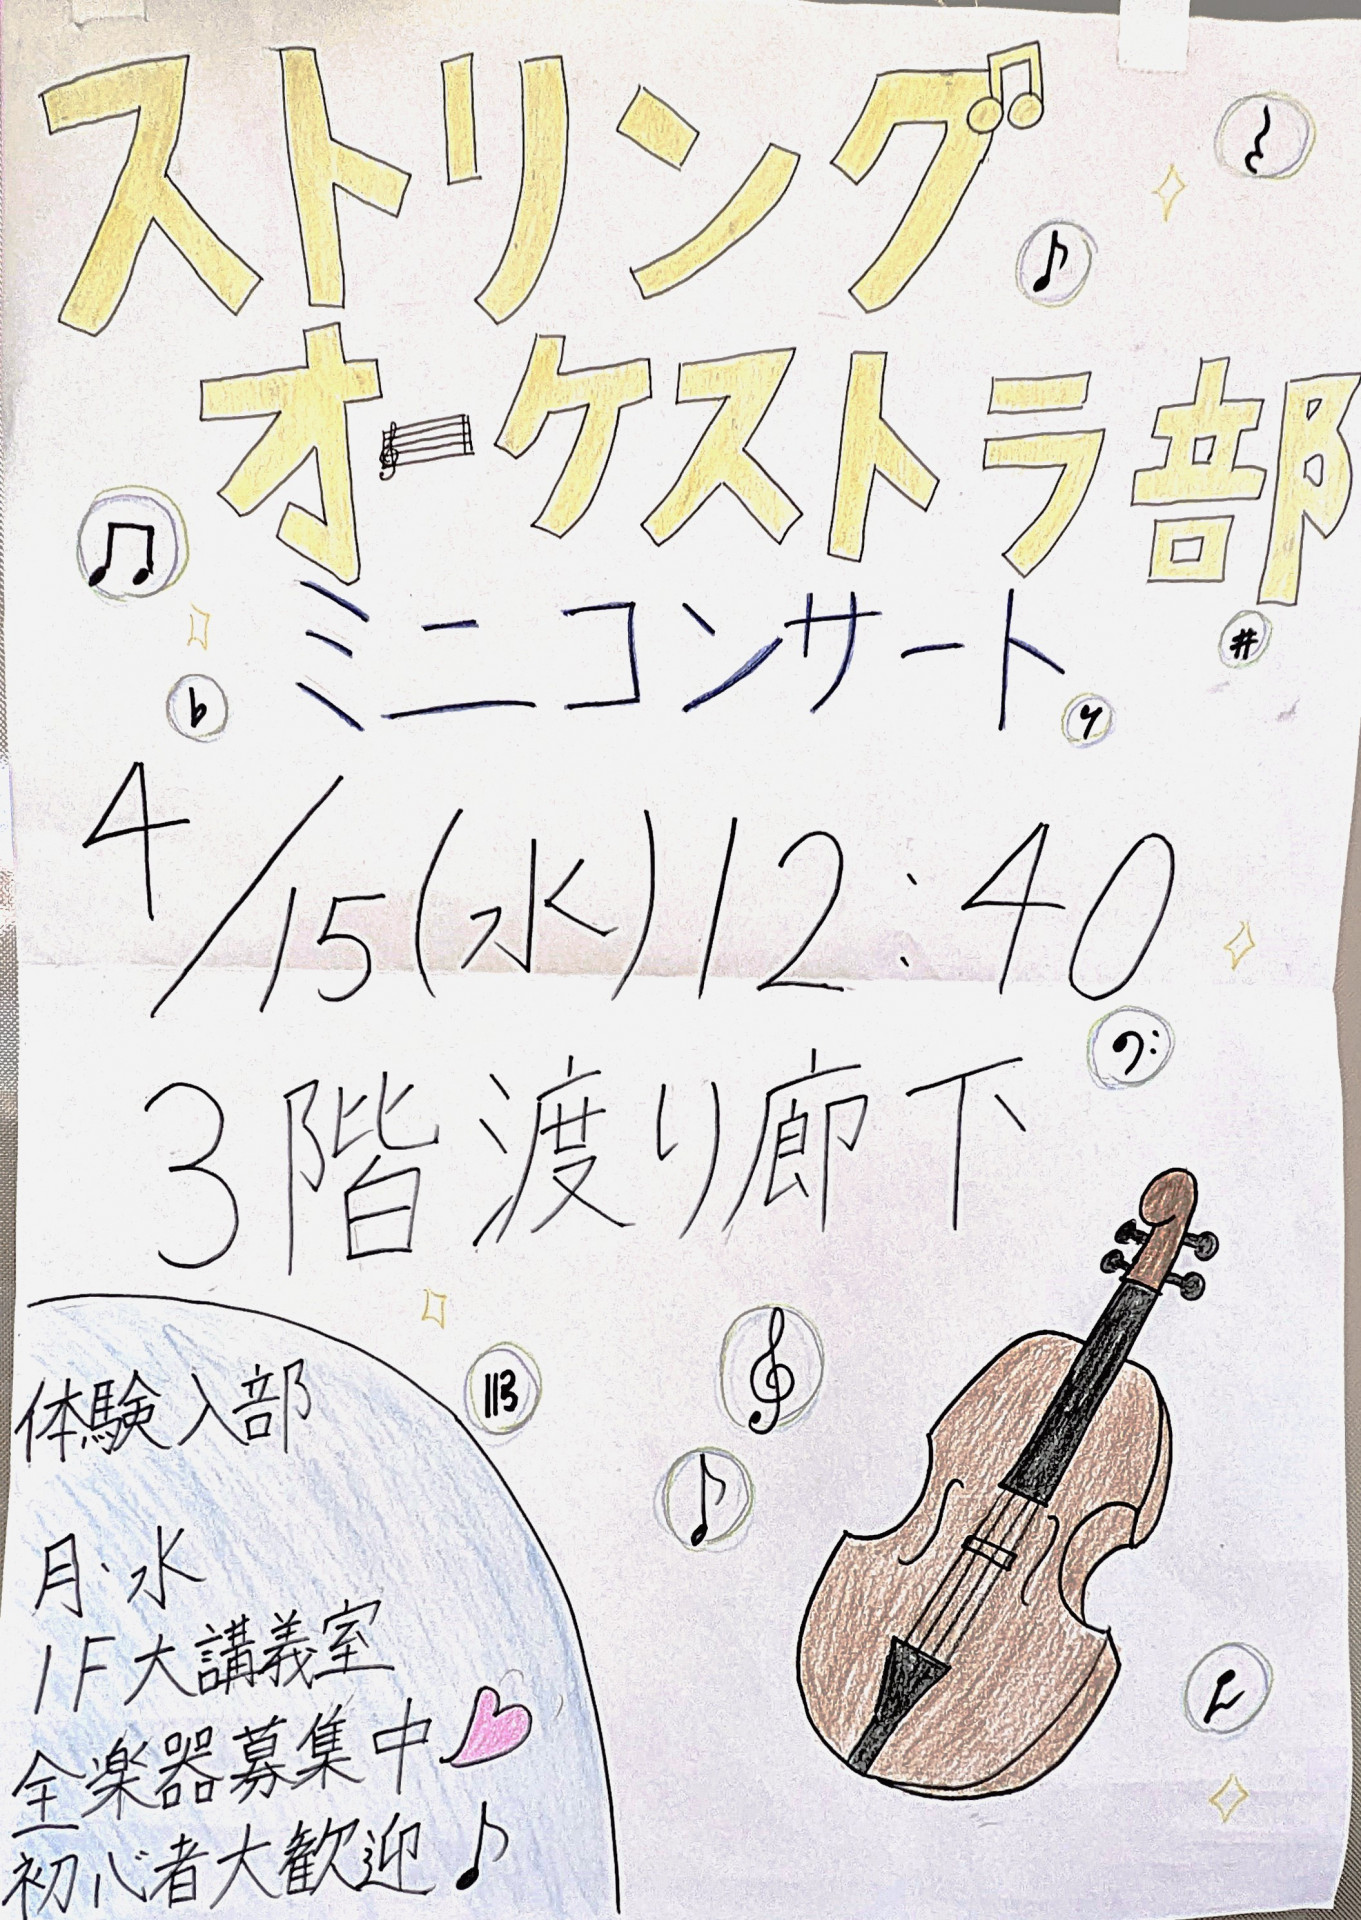 ストリング
オーケストラ部
ミニコンサート
4/15(水)12:40
3階渡り廊下
体験入部
月・水
1F大講義室
全楽器募集中
初心者大歓迎♪